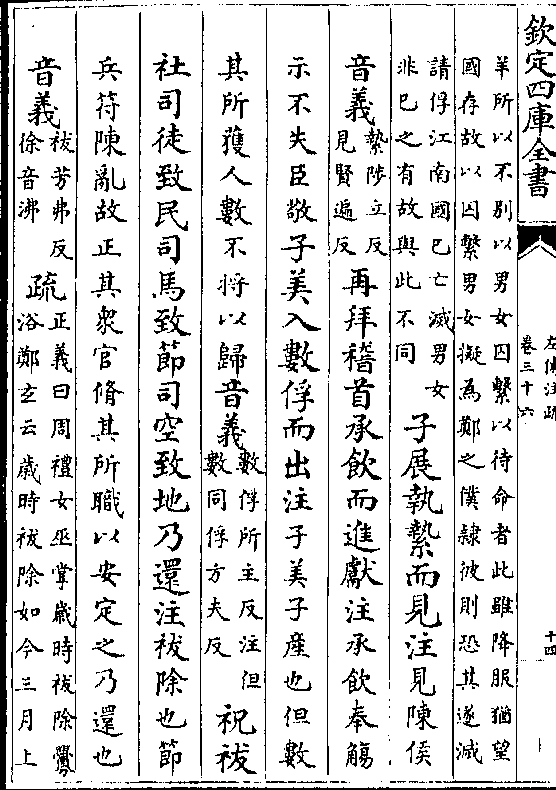 欽定四庫全書
左傳注疏
卷三十六
十四
羊所以不别以男女囚繫以待命者此雖降服猶望
國存故以囚繫男女擬為鄭之僕隸彼則恐其遂滅
請俘江南國已亡滅男女
非已之有故與此不同
子展執縶而見注見陳侯
音義
縶陟立反
見賢遍反
再拜稽首承飲而進獻注承飲奉觴
示不失臣敬子美入數俘而出注子美子産也但數
其所獲人數不將以歸音義
數俘所主反注但
數同俘方夫反
祝祓
社司徒致民司馬致節司空致地乃還注祓除也節
兵符陳亂故正其衆官脩其所職以安定之乃還也
音義
祓芳弗反
徐音沸
疏
正義曰周禮女巫掌歲時祓除釁
浴鄭玄云歲時祓除如今三月上